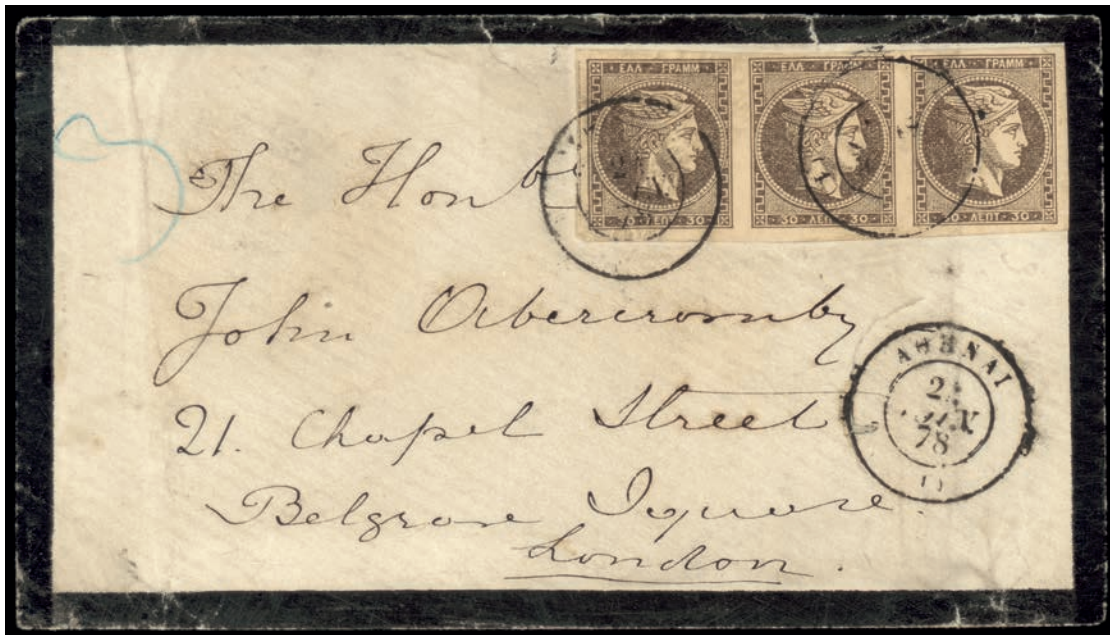 ΕΛΛ · ΓΡΑΜΜ
ΕΛΛ · ΓΡΑΜΜ
ΕΛΛ · ΓΡΑΜΜ
30 ΛΕΠΤ · 30
30 ΛΕΠΤ · 30
30 ΛΕΠΤ · 30
The Honble
John Abercromby
21. Chapel Street
Belgrave Square.
London.
ΑΘΗΝΑΙ
78